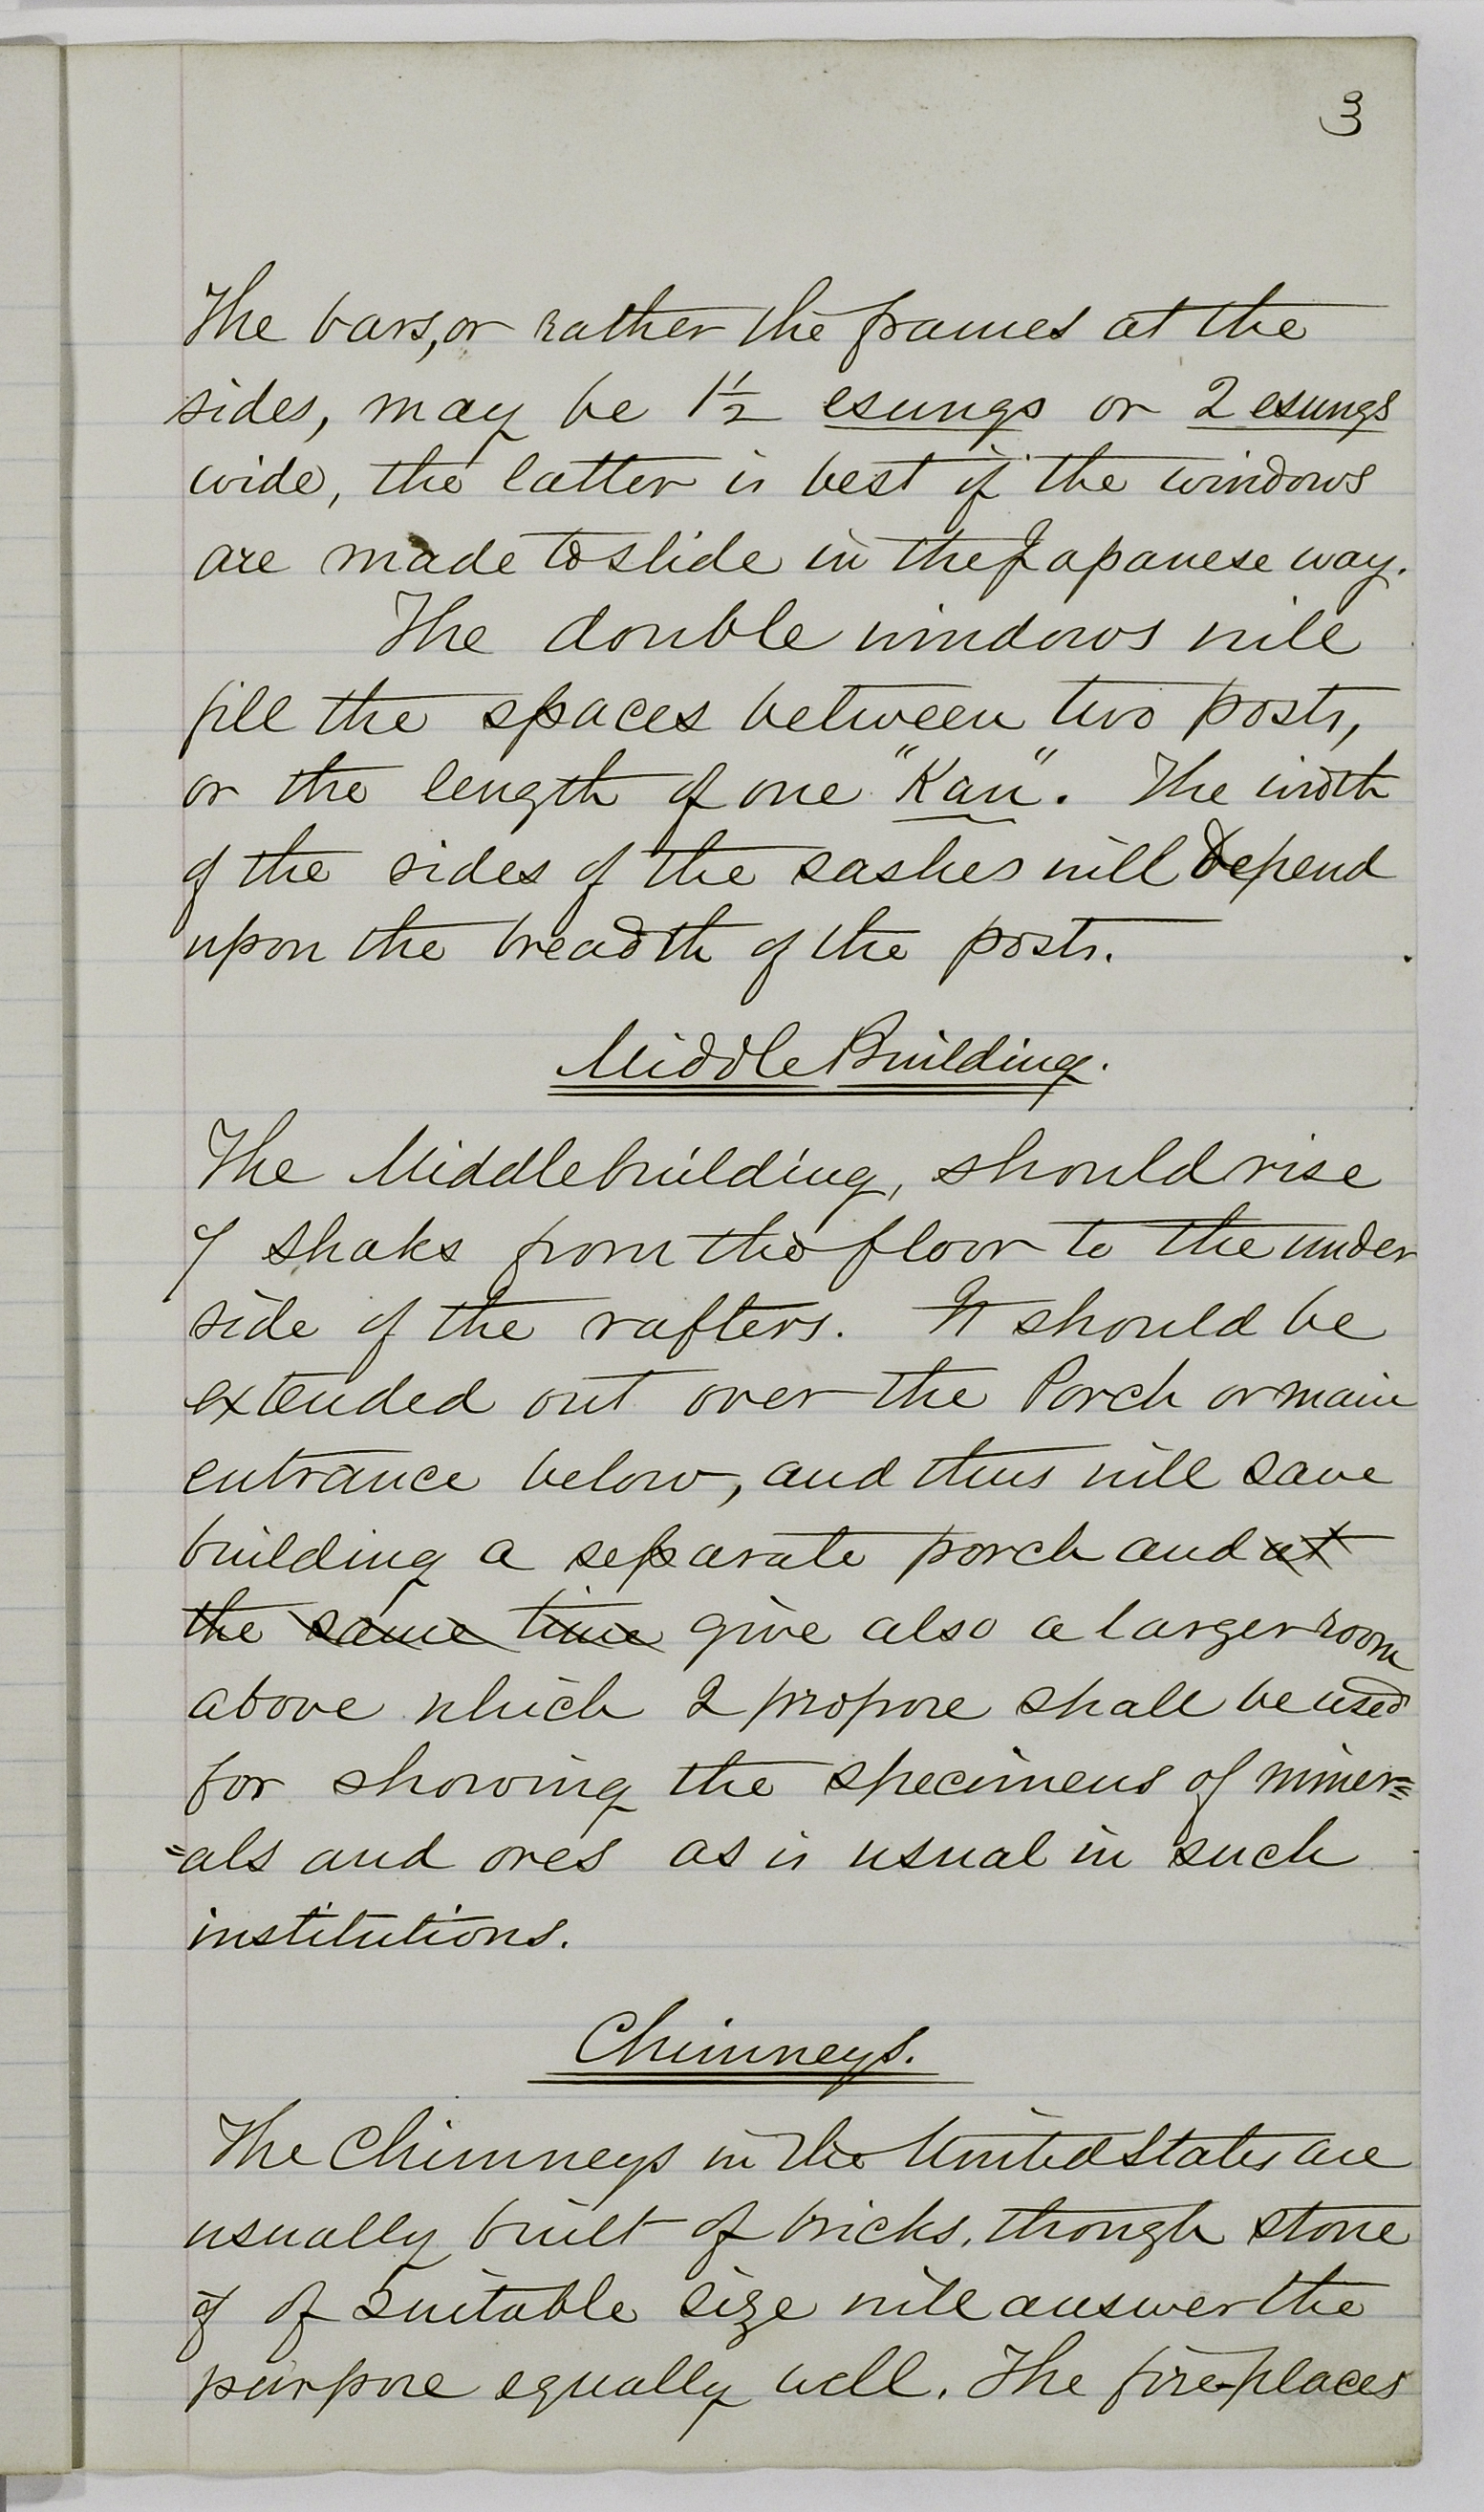 3
The bars, or rather the frames at the
sides, may be 1½ esungs or 2 esungs
wide, the latter is best if the windows
are made to slide in the Japanese way.
The double windows will
fill the spaces between two posts,
or the length of one "Kan". The width
of the sides of the sashes will depend
upon the breadth of the posts.
Middle Building.
The Middle building, should rise
7 shaks from the floor to the under
side of the rafters. It should be
extended out over the Porch or main
entrance below, and thus will save
building a separate porch and at
the same time give also a larger room
above which I propose shall be used
for showing the specimens of miner=
=als and ores as is usual in such
institutions.
Chimneys.
The Chimneys in the United States are
usually built of bricks, though stone
if of suitable size will answer the
purpose equally well. The fire-places